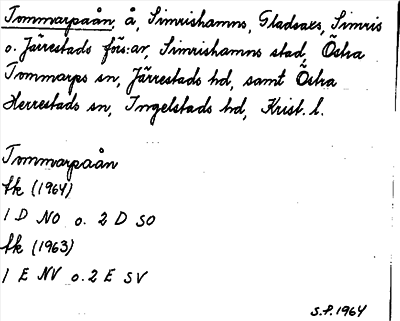 Tommarpaån, å, Simrishamns, Gladsaxs, Simris
o. Järrestads förs:ar, Simrishamns stad, Östra
Tommarps sn, Järrestads hd, samt Östra
Herrestads sn, Ingelstads hd, Krist. l.
Tommarpaån
Ek (1964)
1 D NO o. 2 D SO
Ek (1963)
1 E NV o. 2 E SV
S.F. 1964